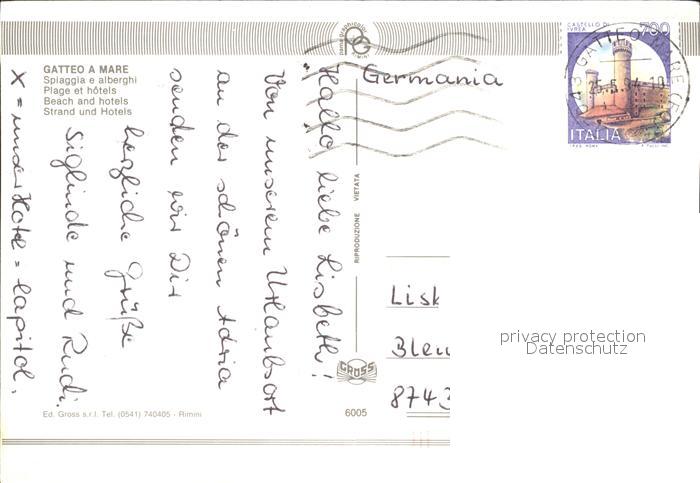 GATTEO A MARE
Spiaggia e alberghi
Plage et hôtels
Beach and hotels
Strand und Hotels
Hallo liebe Lisbeth!
Von unserem Urlaubsort
an der schönen Adria
senden wir Dir
herzliche Grüße
Siglinde und Rudi.
X = unser Hotel = Capitol.
Ed. Gross s.r.l. Tel. (0541) 740405 - Rimini
6005
RIPRODUZIONE VIETATA
GROSS
Germania
CASTELLO DI
IVREA
700
ITALIA
GATTEO MARE
25.5.94-10
Lisk
Blen
8743
privacy protection
Datenschutz